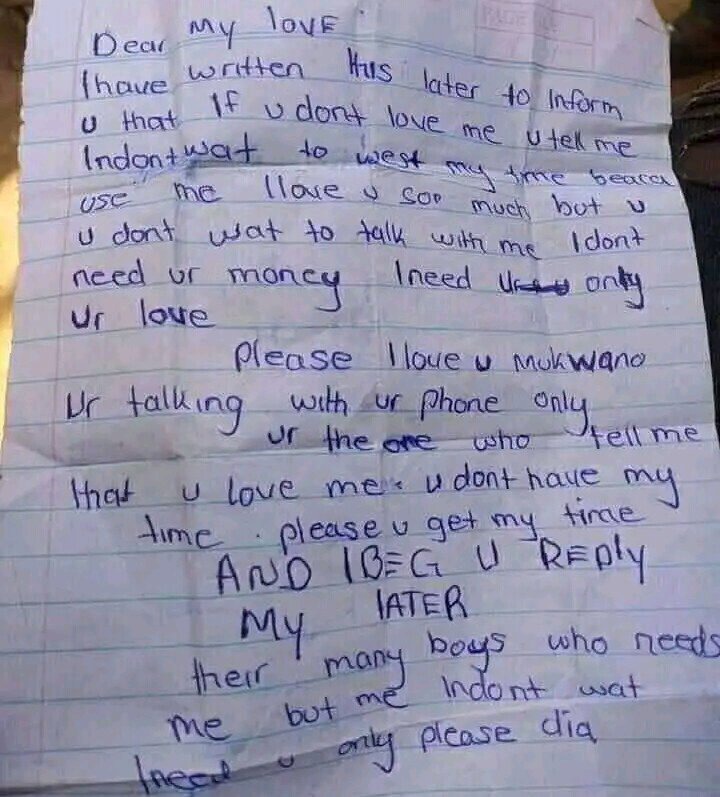 PAGE
Dear my love.
I have written this later to Inform
u that If u dont love me u tell me
Indont wat to west my time beaca
use me I love u soo much but u
u dont wat to talk with me I dont
need ur money I need only
ur love
please I love u mukwano
Ur talking with ur phone only
ur the one who tell me
that u love me. u dont have my
time. please u get my time
AND I BEG U REPly
My lATER
their many boys who needs
me but me Indont wat
I need u only please dia